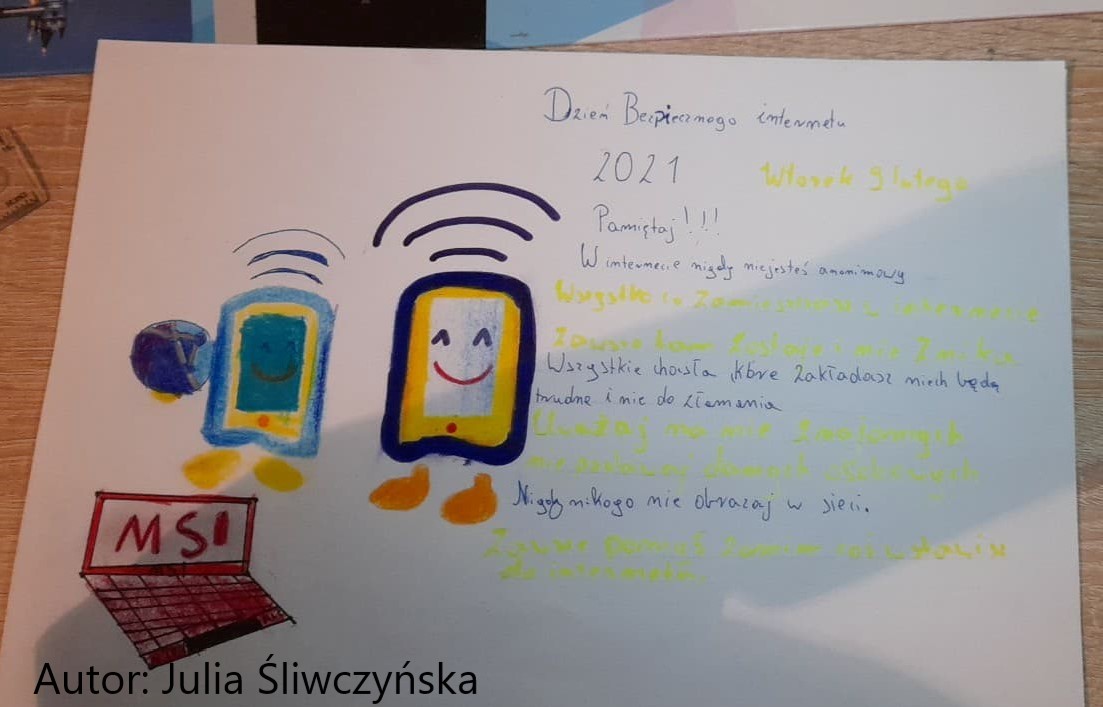 Dzień Bezpiecznego internetu
2021
Wtorek 9 lutego
Pamiętaj!!!
W internecie nigdy niejesteś anonimowy
Wszystko co zamieszczasz w internecie
Zawsze tam zostaje i nie znika
Wszystkie hasła ,które zakładasz niech będą
trudne i nie do złamania
Uważaj na nie znajomych
nie podawaj danych osobowych
Nigdy nikogo nie obrazaj w sieci.
Zawsze pomyśl zanim coś wstawisz
do internetu.
MSI
Autor: Julia Śliwczyńska